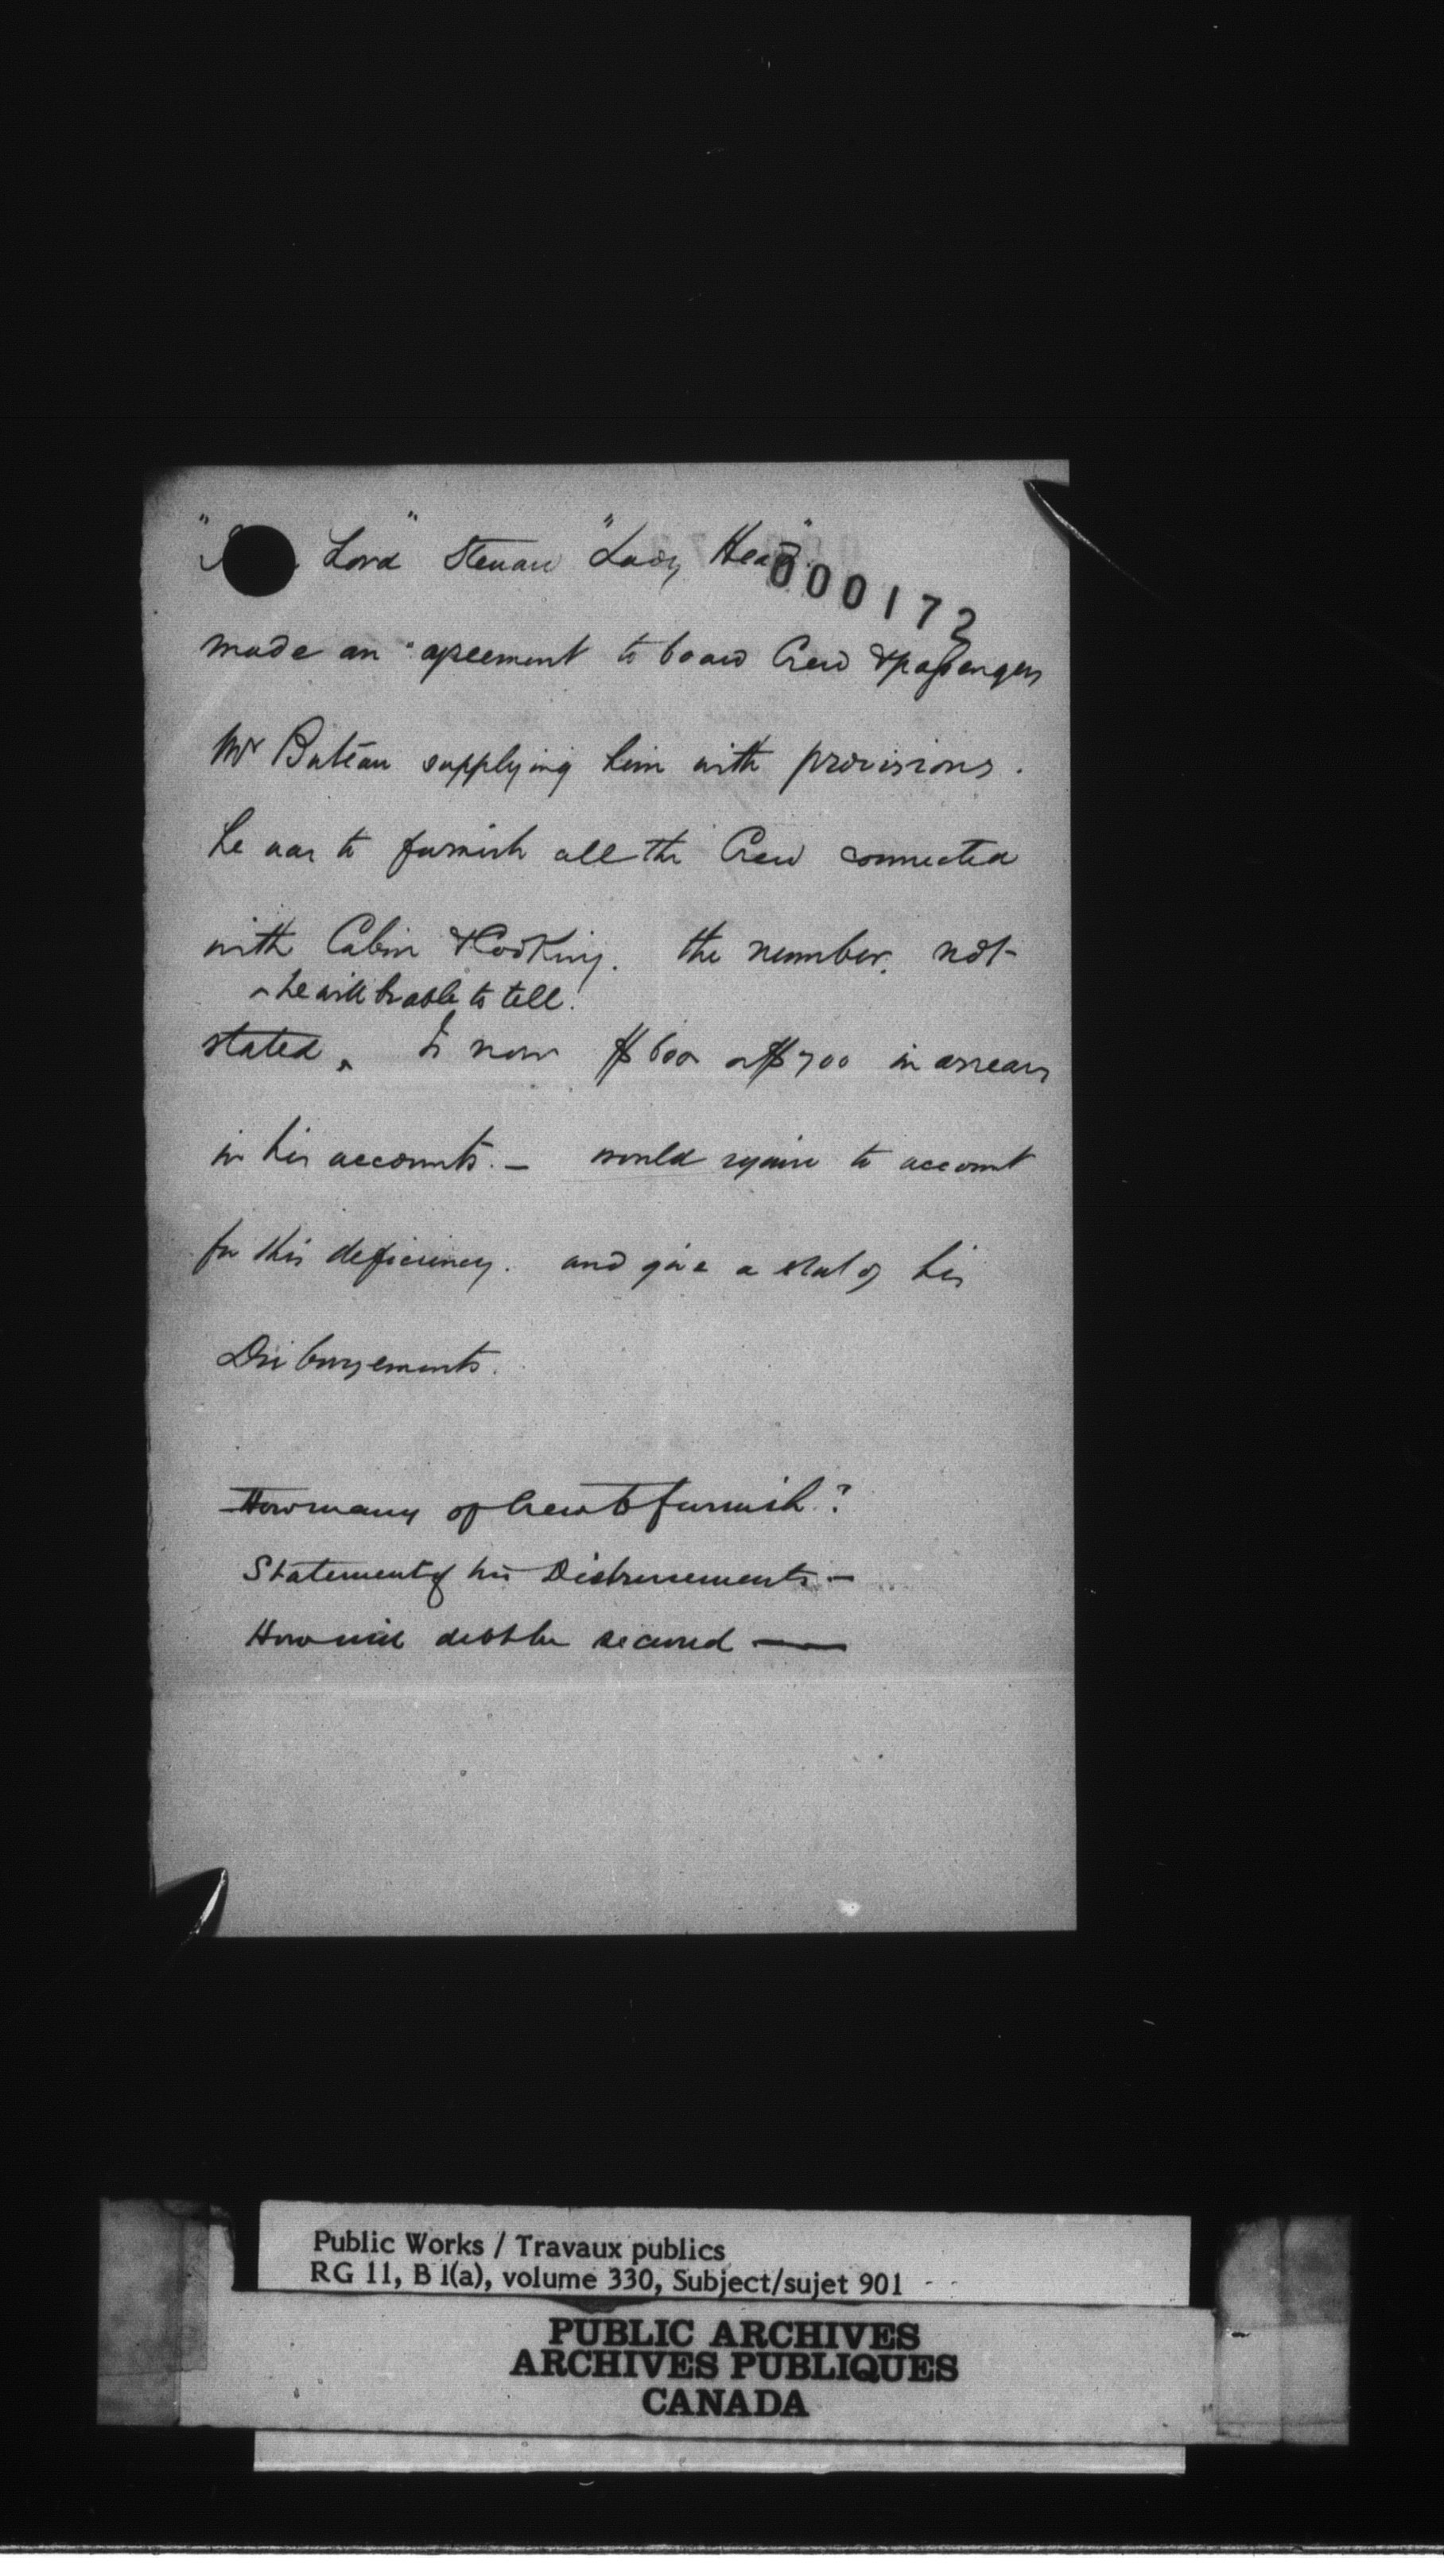 Lord" Steward "Lady Head".
000172
made an agreement to board Crew & passengers
Mr Buteau supplying him with provisions.
he was to furnish all the Crew connected
with Cabin & Cooking. the number not
^ he will be able to tell.
stated ^ Is now $600 or $700 in arrears
in his accounts. — would require to account
for this deficiency. and give a stat of his
Disbursements.
How many of Crew to furnish?
Statement of his Disbursements —
How will debt be secured —
Public Works / Travaux publics
RG 11, B 1(a), volume 330, Subject/sujet 901
PUBLIC ARCHIVES
ARCHIVES PUBLIQUES
CANADA